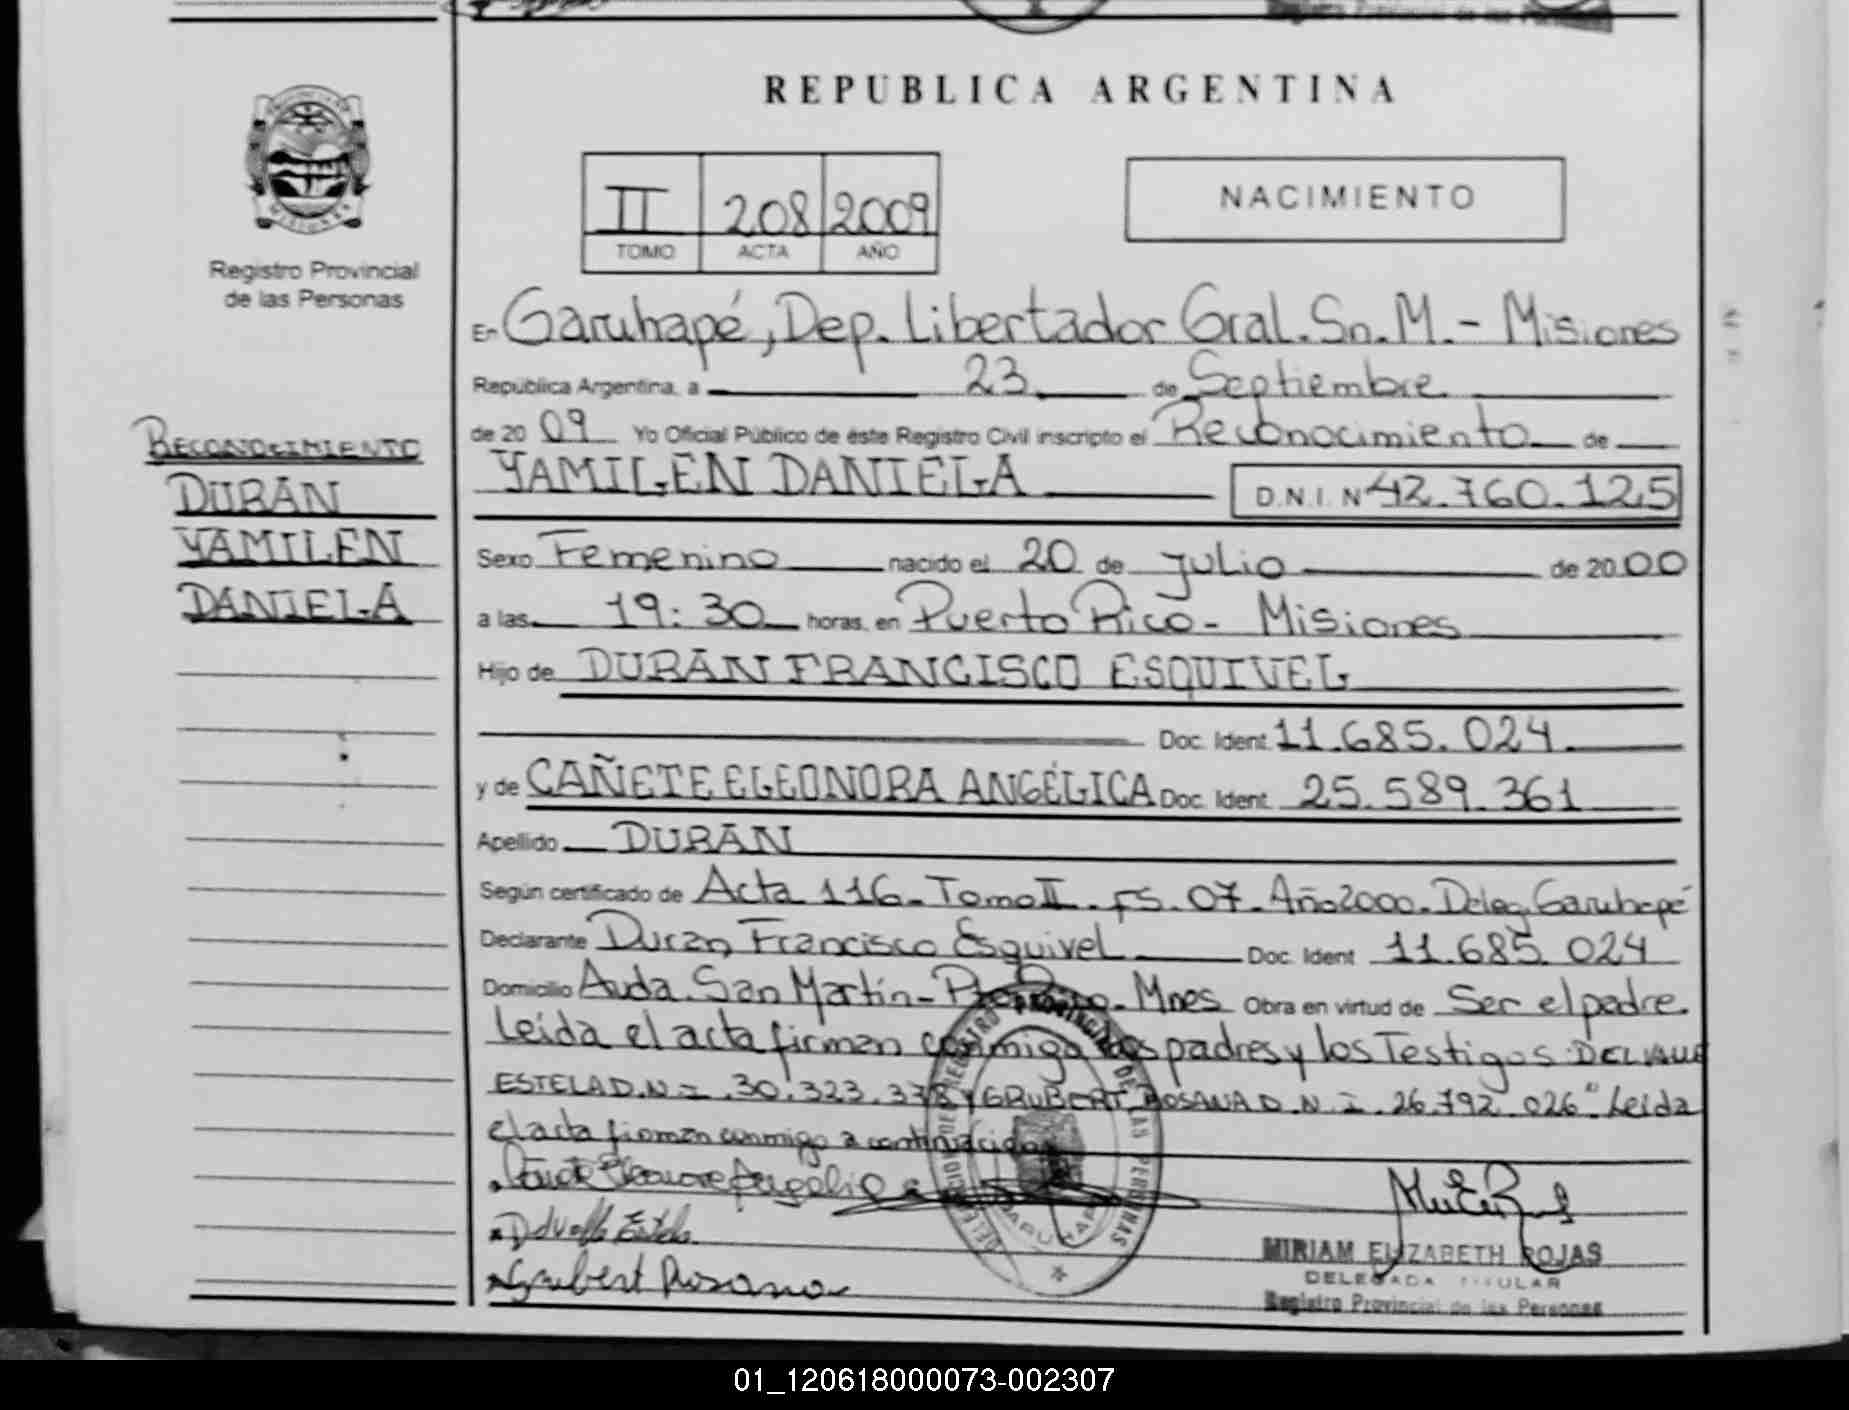 REPUBLICA ARGENTINA
II 208 2009
TOMO ACTA AÑO
NACIMIENTO
MISIONES
Registro Provincial
de las Personas
RECONOCIMIENTO
DURÁN
YAMILEN
DANIELA
En Garuhapé, Dep. Libertador Gral. Sn. M. - Misiones
República Argentina, a 23 de Septiembre
de 20 09 Yo Oficial Público de éste Registro Civil inscripto el Reconocimiento de
YAMILEN DANIELA D.N.I. Nº 42.760.125
Sexo Femenino nacido el 20 de julio de 20 00
a las 19:30 horas, en Puerto Rico - Misiones
Hijo de DURÁN FRANCISCO ESQUIVEL
Doc. Ident. 11.685.024
y de CAÑETE ELEONORA ANGÉLICA Doc. Ident. 25.589.361
Apellido DURÁN
Según certificado de Acta 116. Tomo II. FS. 07. Año 2000. Deleg. Garuhapé
Declarante Duran, Francisco Esquivel Doc. Ident 11.685.024
Domicilio Avda. San Martín - Pto Rico - Mnes Obra en virtud de Ser el padre.
Leída el acta firman conmigo los padres y los Testigos: DELVALLE
ESTELA D.N.I. 30.323.378 y GRUBERT ROSANA D.N.I. 26.792.026" Leida
el acta firman conmigo a continuación
Cañete Eleonora Angelica
Delvalle Estela
Grubert Rosana
MIRIAM ELIZABETH ROJAS
DELEGADA TITULAR
Registro Provincial de las Personas
01_120618000073-002307